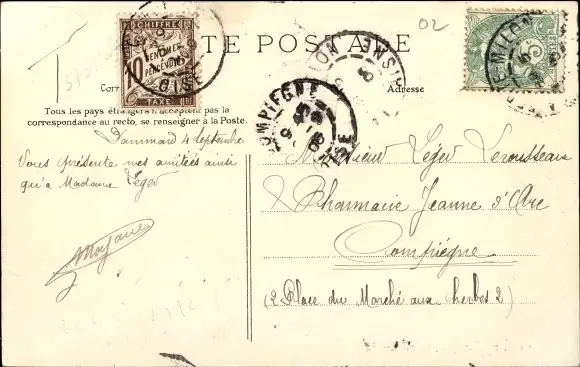 02
CARTE POSTALE
CHIFFRE
10
CENTIMES
À PERCEVOIR
TAXE
5
Adresse
Tous les pays étrangers n'acceptent pas la
correspondance au recto, se renseigner à la Poste.
COMPIEGNE
OISE
Dammard 4 Septembre
Vous présente mes amitiés ainsi
qu'à Madame Léger
Monsieur Léger
Pharmacie Jeanne d'Arc
Compiègne
(2 Place du Marché aux herbes 2)